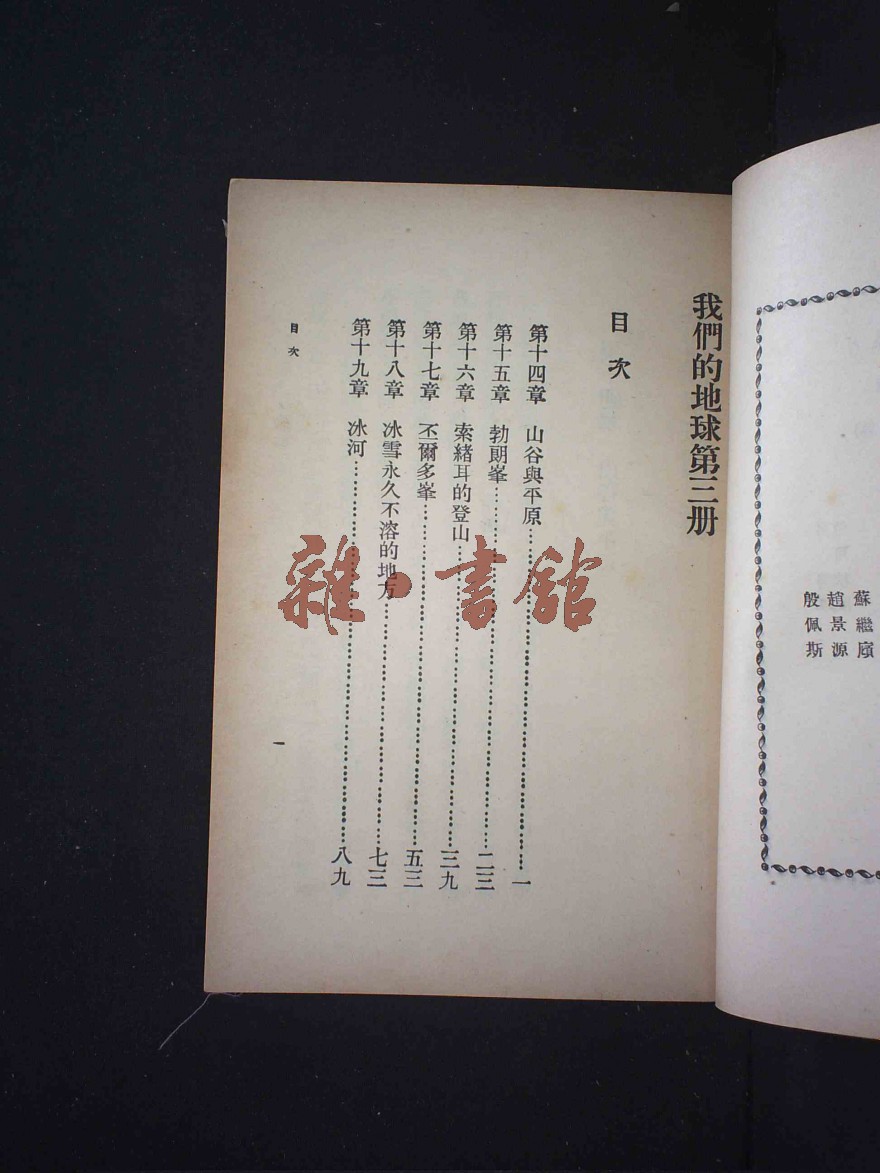 蘇繼廎
趙景源
殷佩斯
我們的地球第三册
目次
第十四章 山谷與平原 一
第十五章 勃朗峯 二三
第十六章 索緖耳的登山 三九
第十七章 丕爾多峯 五三
第十八章 冰雪永久不溶的地方 七三
第十九章 冰河 八九
目次
一
雜·書館